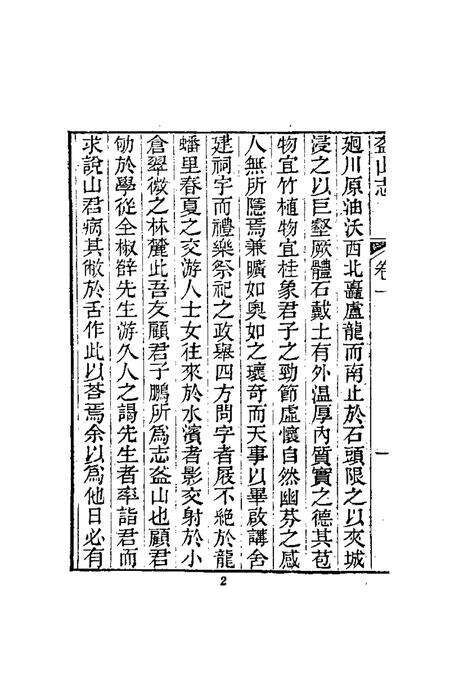 盋山志 卷一 一
廻川原油沃西北矗盧龍而南止於石頭限之以夾城
浸之以巨壑厥體石戴土有外溫厚內質實之德其苞
物宜竹植物宜桂象君子之勁節虛懷自然幽芬之感
人無所隱焉兼曠如奧如之瓌奇而天事以畢啟講舍
建祠宇而禮樂祭祀之政舉四方問字者屐不絕於龍
蟠里春夏之交游人士女往來於水濱者影交射於小
倉翠微之林麓此吾友顧君子鵬所為志盋山也顧君
劬於學從全椒薛先生游久人之謁先生者率詣君而
求說山君病其敝於舌作此以荅焉余以為他日必有
2